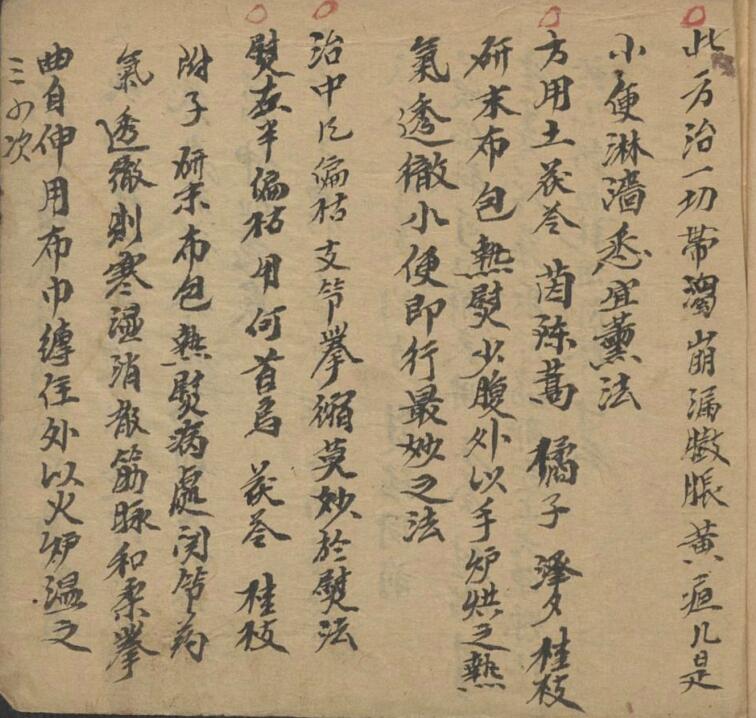 此方治一切帶濁崩漏臌脹黃疸凡是
小便淋濇悉宜薰法
方用土茯苓 茵陳蒿 橘子 澤夕 桂枝
研末布包熱熨少腹外以手炉烘之熱
氣透徹小便即行最妙之法
治中氏偏枯支節攣縮莫妙於熨法
熨左半偏枯用何首烏 茯苓 桂枝
附子 研末布包熱熨病處関節药
氣透徹則寒湿消散筋脉和柔攣
曲自伸用布巾纏住外以火炉温之
三四次